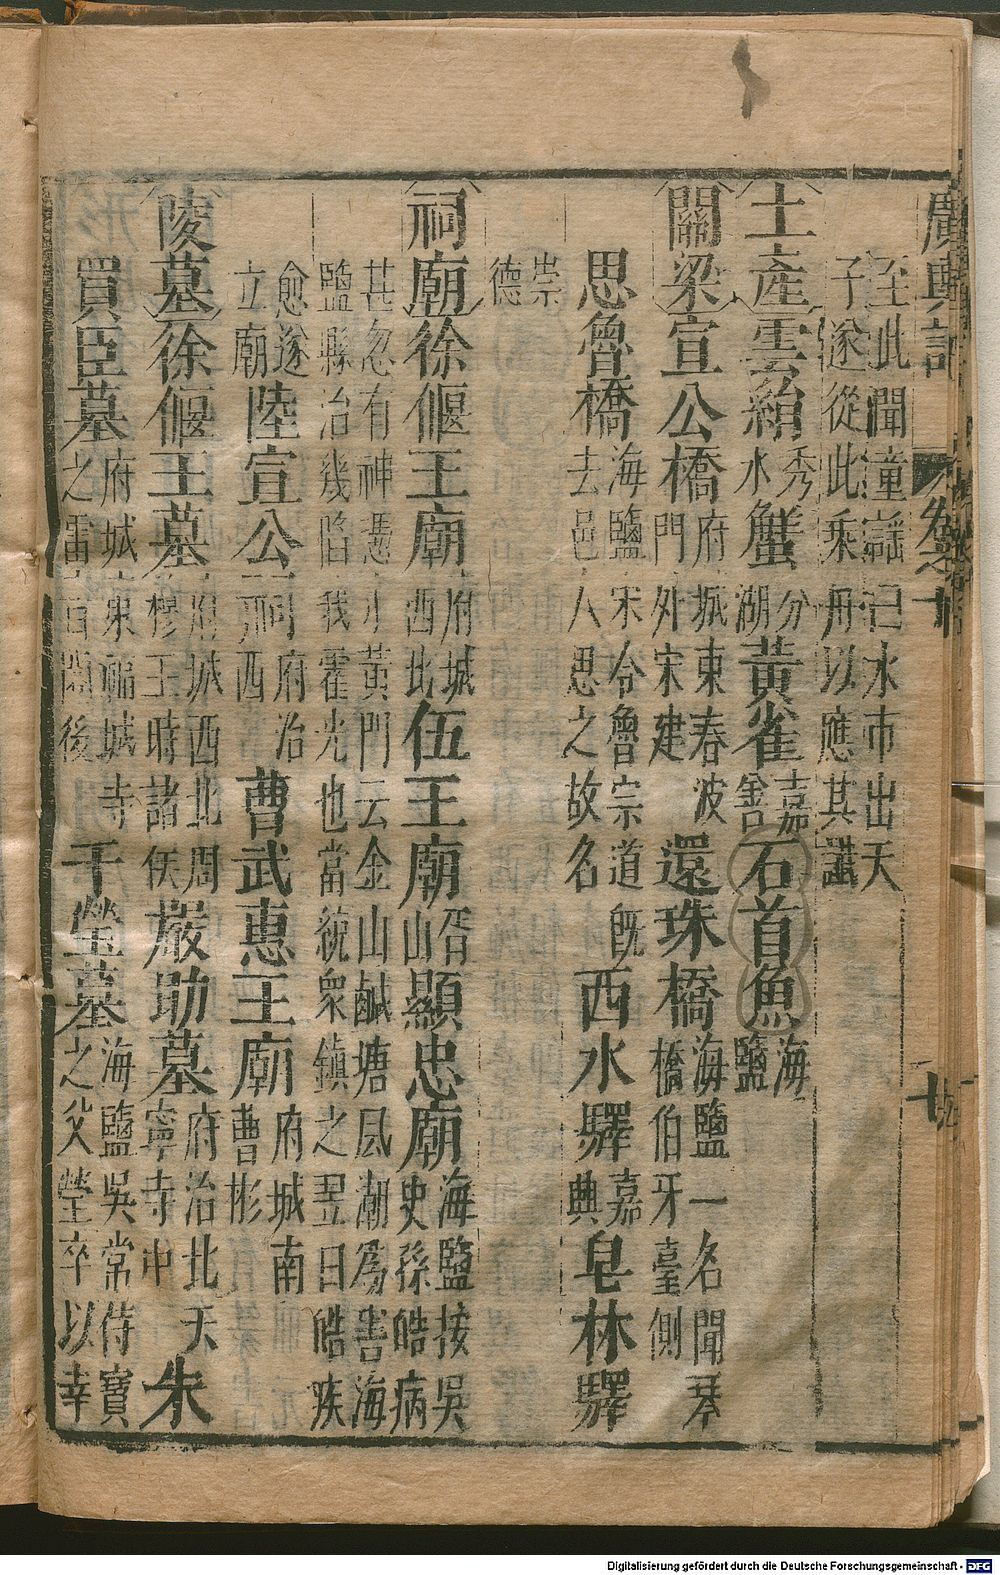 廣輿記 卷之十
至此聞童謡曰水市出天
子遂從此乘舟以應其讖
土產 雲綃 秀水 蟹 分湖 黃雀 嘉善 石首魚 海鹽
關梁 宣公橋 府城東春波門外宋建 還珠橋 海鹽一名聞琴橋伯牙臺側
思魯橋 海鹽宋令魯宗道既去邑人思之故名 西水驛 嘉典 皂林驛
崇德
祠廟 徐偃王廟 府城西北 伍王廟 胥山 顯忠廟 海鹽按吳史孫皓病
甚忽有神憑小黃門云金山鹹塘風潮爲害海
鹽縣治幾陷我霍光也當統衆鎮之翌日皓疾
愈遂立廟 陸宣公祠 府治西 曹武惠王廟 府城南曹彬
陵墓 徐偃王墓 府城西北周穆王時諸侯 嚴助墓 府治北天寧寺中 朱
買臣墓 府城東福城寺之雷音閣後 干瑩墓 海鹽吳常侍寶之父瑩卒以幸
Digitalisierung gefördert durch die Deutsche Forschungsgemeinschaft - DFG